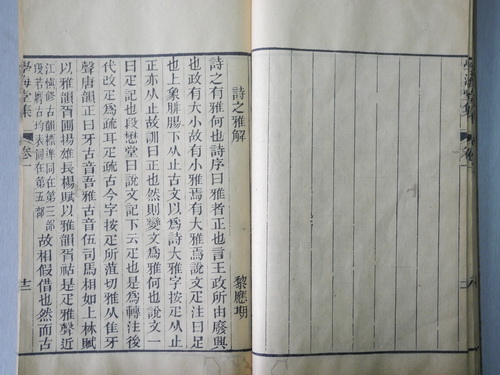 學海堂集
卷一
詩之雅解
黎應期
詩之有雅何也詩序曰雅者正也言王政所由廢興
也政有大小故有小雅焉有大雅焉說文疋注曰足
也上象腓腸下从止古文以爲詩大雅字按疋从止
正亦从止故訓曰正也然則變文爲雅何也說文一
曰疋記也段懋堂曰說文記下云疋也是爲轉注後
代改疋爲疏耳疋疏古今字按疋所菹切雅从隹牙
聲唐韻正曰牙古音吾雅古音伍司馬相如上林賦
以雅韻胥圃揚雄長楊賦以雅韻胥祜是疋雅聲近
江愼修古韻標準同在第三部
段若膺古均表同在第五部
故相假借也然而古
學海堂集
卷一
十二